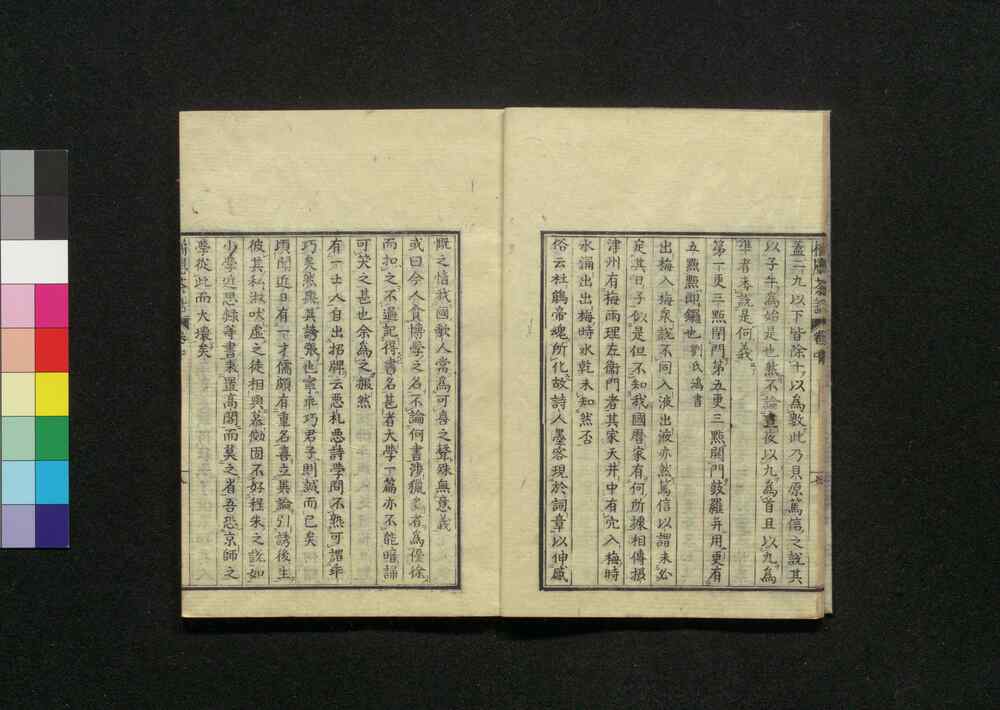 蓋二九以下皆除十以為數此乃貝原篤信之說其
以子午為始是也然不論晝夜以九為首且以九為
準者未說是何義
第一更三點閉門第五更三點開門鼓羅并用更有
五點點即鑼也劉氏鴻書
出梅入梅泉說不同入液出液亦然篤信以謂未必
定其日子似是但不知我國曆家有何所據相傳攝
津州有梅雨理左衞門者其家天井中有穴入梅時
水涌出出梅時水乾未知然否
俗云杜鵑帝魂所化故詩人墨客現於詞章以伸感
慨之情我國歌人常為可喜之聲殊無意義
或曰今人貪博學之名不論何書涉獵多者為優徐
而扣之不過記得書名甚者大學一篇亦不能暗誦
可笑之甚也余為之赧然
有一士人自出招牌云惡札惡詩學問不熟可謂乖
巧矣然無其誇張也寧乖巧君子則誠而已矣
頃聞近日有一才儒頗有重名喜立異論引誘後生
彼其私淑吠虛之徒相與慕効固不好程朱之說如
小學近思錄等書束置高閣而莫之省吾恐京師之
學從此而大壞矣